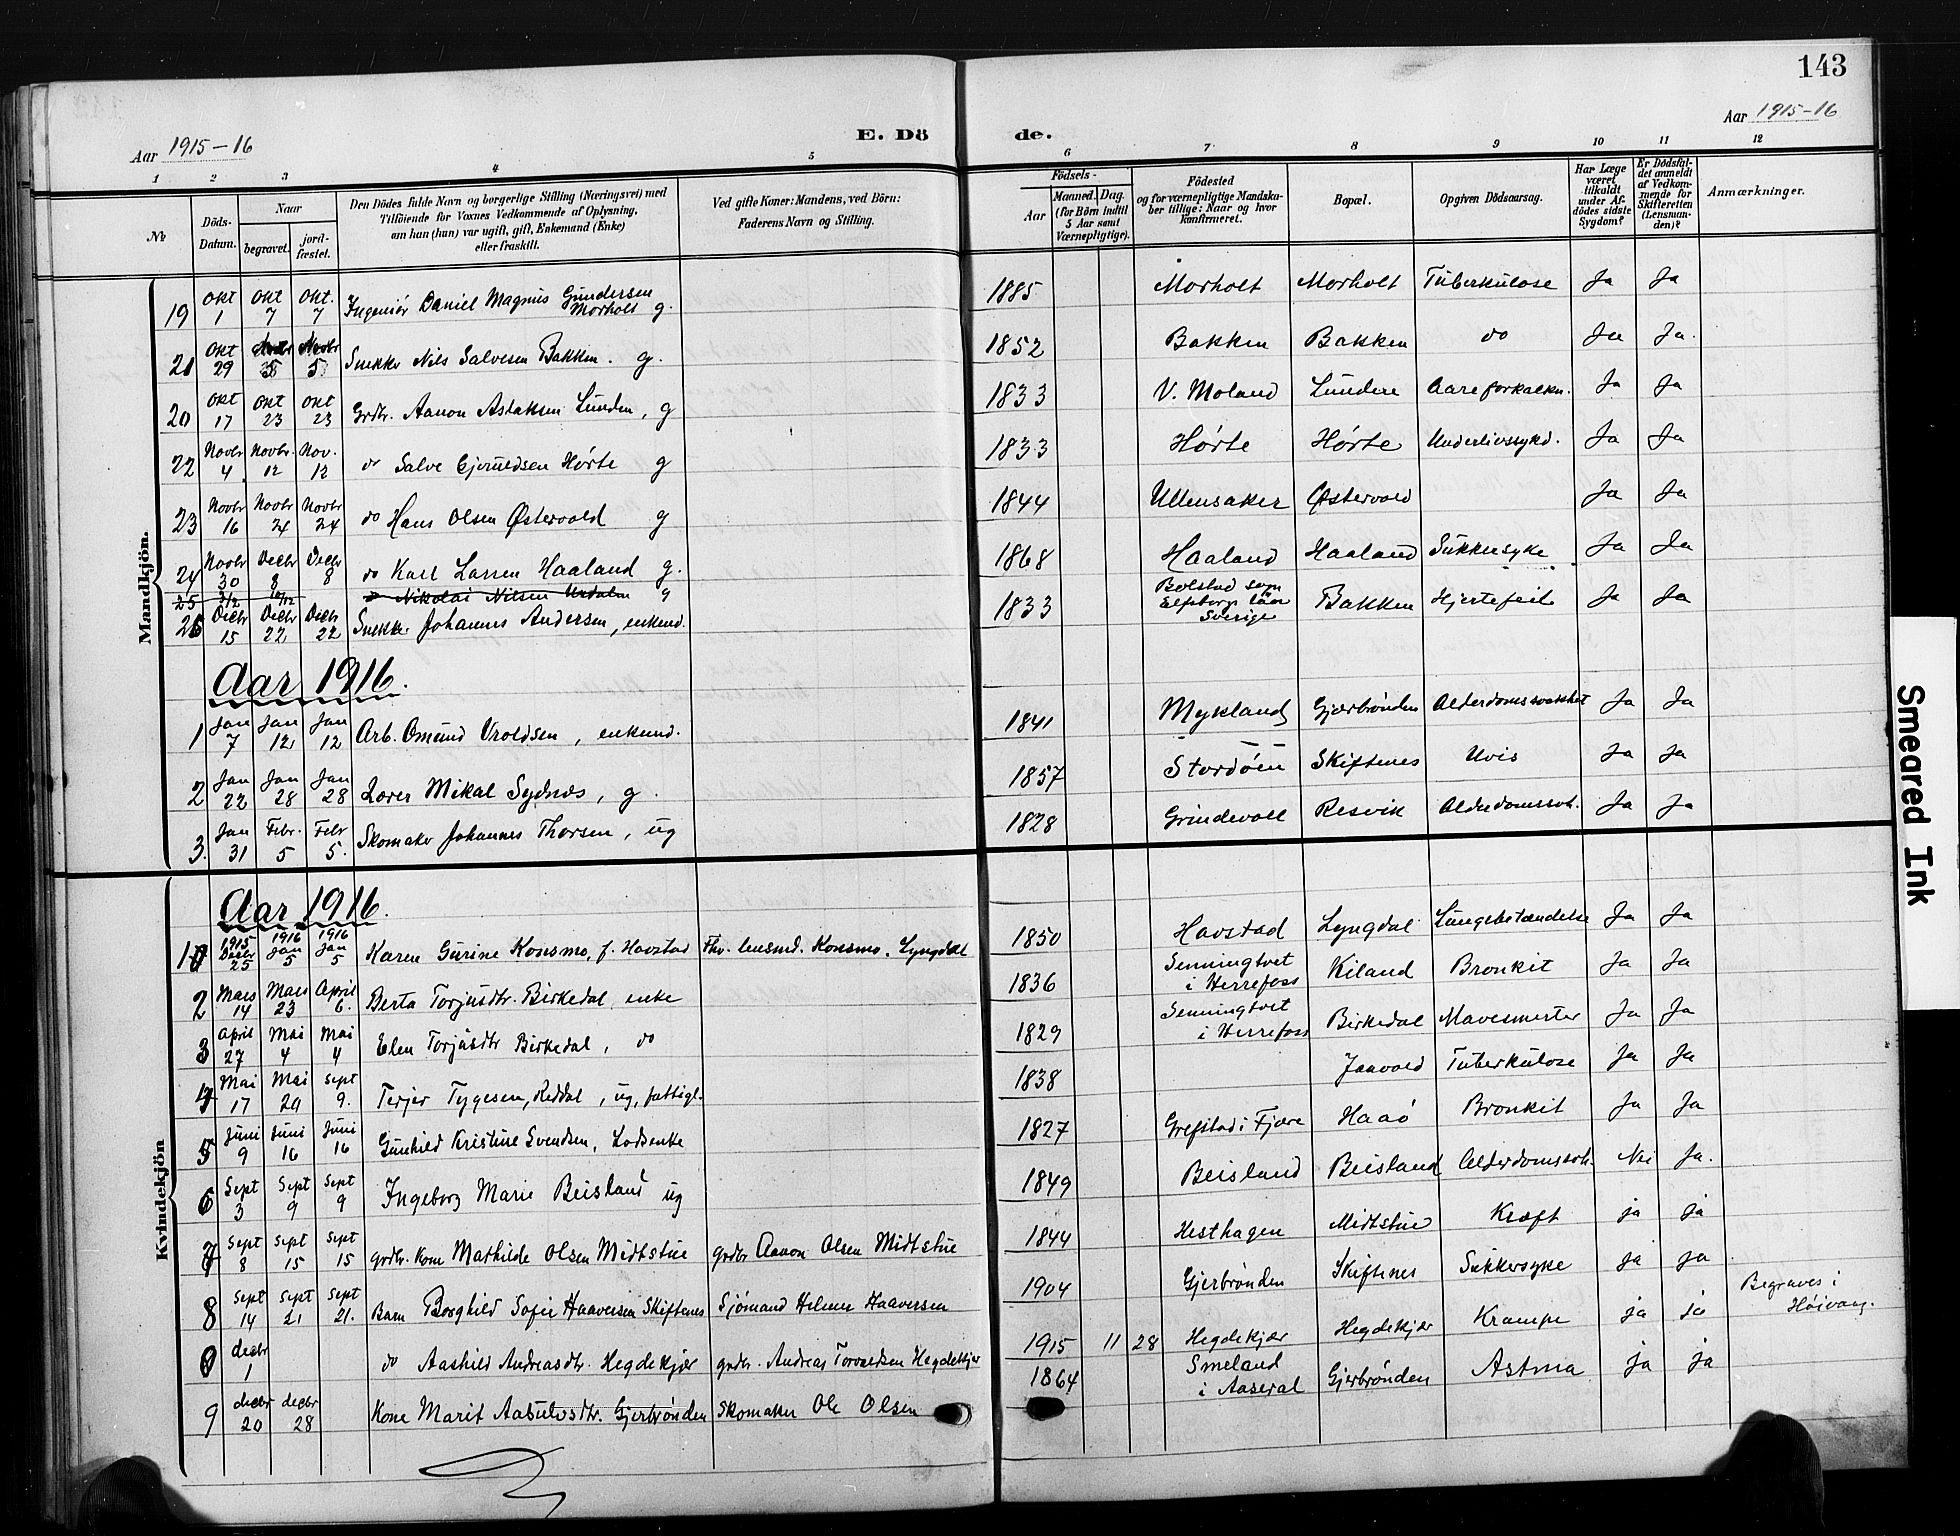 143
Aar 1915-16
E. Dö de.
Aar 1915-16
1 2 3 4 5 6 7 8 9 10 11 12
No
Döds-Datum.
Naar
begravet.
jordfæstet.
Den Dödes fulde Navn og borgerlige Stilling (Næringsvei) med
Tilföiende for Voxnes Vedkommende af Oplysning,
om han (hun) var ugift, gift, Enkemand (Enke)
eller fraskilt.
Ved gifte Koner: Mandens, ved Börn:
Faderens Navn og Stilling.
Födsels-
Aar
Maaned. Dag.
(for Börn indtil
5 Aar samt
Værnepligtige).
Födested
og for værnepligtige Mandskaber tillige: Naar og hvor
konfirmeret.
Bopæl.
Opgiven Dödsaarsag.
Har Læge
været
tilkaldt
under Afdödes sidste
Sygdom?
Er Dödsfaldet anmeldt
af Vedkommende for
Skifteretten
(Lensmanden)?
Anmærkninger.
Mandkjön.
19 Okt 1 Okt 7 Okt. 7 Ingeniør Daniel Magnus Gundersen Morholt g. 1885 Morholt Morholt Tuberkulose Ja Ja
21 Okt 29 Novbr 5 Novbr 5 Snekker Nils Salvesen Bakken. g. 1852 Bakken Bakken do Ja Ja.
20 Okt 17 Okt 23 Okt 23 Grdbr. Aanon Aslaksen Lunden, g 1833 V. Moland Lunden Aareforkalkn. Ja Ja
22 Novbr 4 Novbr. 12 Nov. 12 do Salve Gjeruldsen Hørte g 1833 Hørte Hørte Underlivssykd. Ja Ja
23 Novbr 16 Novbr 24 Novbr 24 do Hans Olsen Østervold g 1844 Ullensaker Østervold Ja Ja
24 Novbr 30 Decbr 8 Decbr 8 do Karl Larsen Haaland g. 1868 Haaland Haaland Sukkersyke Ja Ja
25 3/12 10/12 do Nikolai Nilsen Urdalen g
26 Decbr 15 Decbr 22 Decbr 22 Snekker Johannes Andersen, enkemd. 1833 Bolstad sogn Elfsborgs Län Sverige Bakken Hjertefeil Ja Ja
Aar 1916.
1 Jan 7 Jan 12 Jan 12 Arb. Omund Vroldsen, enkemd. 1841 Mykland Gjerbrønden Alderdomssvakhet Ja Ja
2 Jan 22 Jan 28 Jan 28 Lærer Mikal Sydnes, g. 1857 Stordöen Skiftenes Uvis Ja Ja
3. Jan 31 Febr. 5 Febr 5. Skomaker Johannes Thorsen, ug 1828 Grindevoll Resvik Alderdomssvh. Ja Ja
Kvindekjön
Aar 1916.
1 1915 Decbr 25 1916 Jan 5 1916 Jan 5 Karen Gurine Konsmo, f. Havstad Fhv. lensmd. Konsmo, Lyngdal 1850 Havstad Lyngdal Lungebetændelse Ja Ja
2 Mars 14 Mars 23 April 6. Berta Torjusdtr. Birkedal, enke 1836 Senningtvet i Herrefoss Kiland Bronkit Ja Ja
3 April 27 Mai 4 Mai 4 Elen Torjusdtr Birkedal, do 1829 Senningtvet i Herrefoss Birkedal Mavesmerter Ja Ja
4 Mai 17 Mai 20 Sept 9. Terjer Tygesen, Reddal, ug, fattigl. 1838 Jaavold Tuberkulose Ja Ja
5 Juni 9 Juni 16 Juni 16 Gunhild Kristine Svendsen, Lodsenke 1827 Grefstad i Fjære Haaö Bronkit Ja Ja
6 Sept 3 Sept 9 Sept 9 Ingeborg Marie Beisland ug 1849 Beisland Beisland Alderdomssvh. Nei Ja.
7 Sept 8 Sept 15 Sept 15 grdbr. kone Mathilde Olsen Midtstue grdbr Aanon Olsen Midtstue 1844 Hesthagen Midtstue Kræft ja ja
8 Sept 14 Sept 21 Sept 21. Barn Borghild Sofie Haaversen Skiftenes Sjømand Helmer Haaversen 1904 Gjerbrønden Skiftenes Sukkersyke ja ja
decbr 1 do Aashild Andreasdtr. Hegdekjær grdbr. Andreas Torvaldsen Hegdekjær 1915 11 28 Hegdekjær Hegdekjær Krampe ja ja Begraves i Höivaag.
9 decbr 20 decbr 28 Kone Marit Aasulvsdtr. Gjerbrønden Skomaker Ole Olsen 1864 Smeland i Aaseral Gjerbrønden Astma ja ja
Smeared Ink